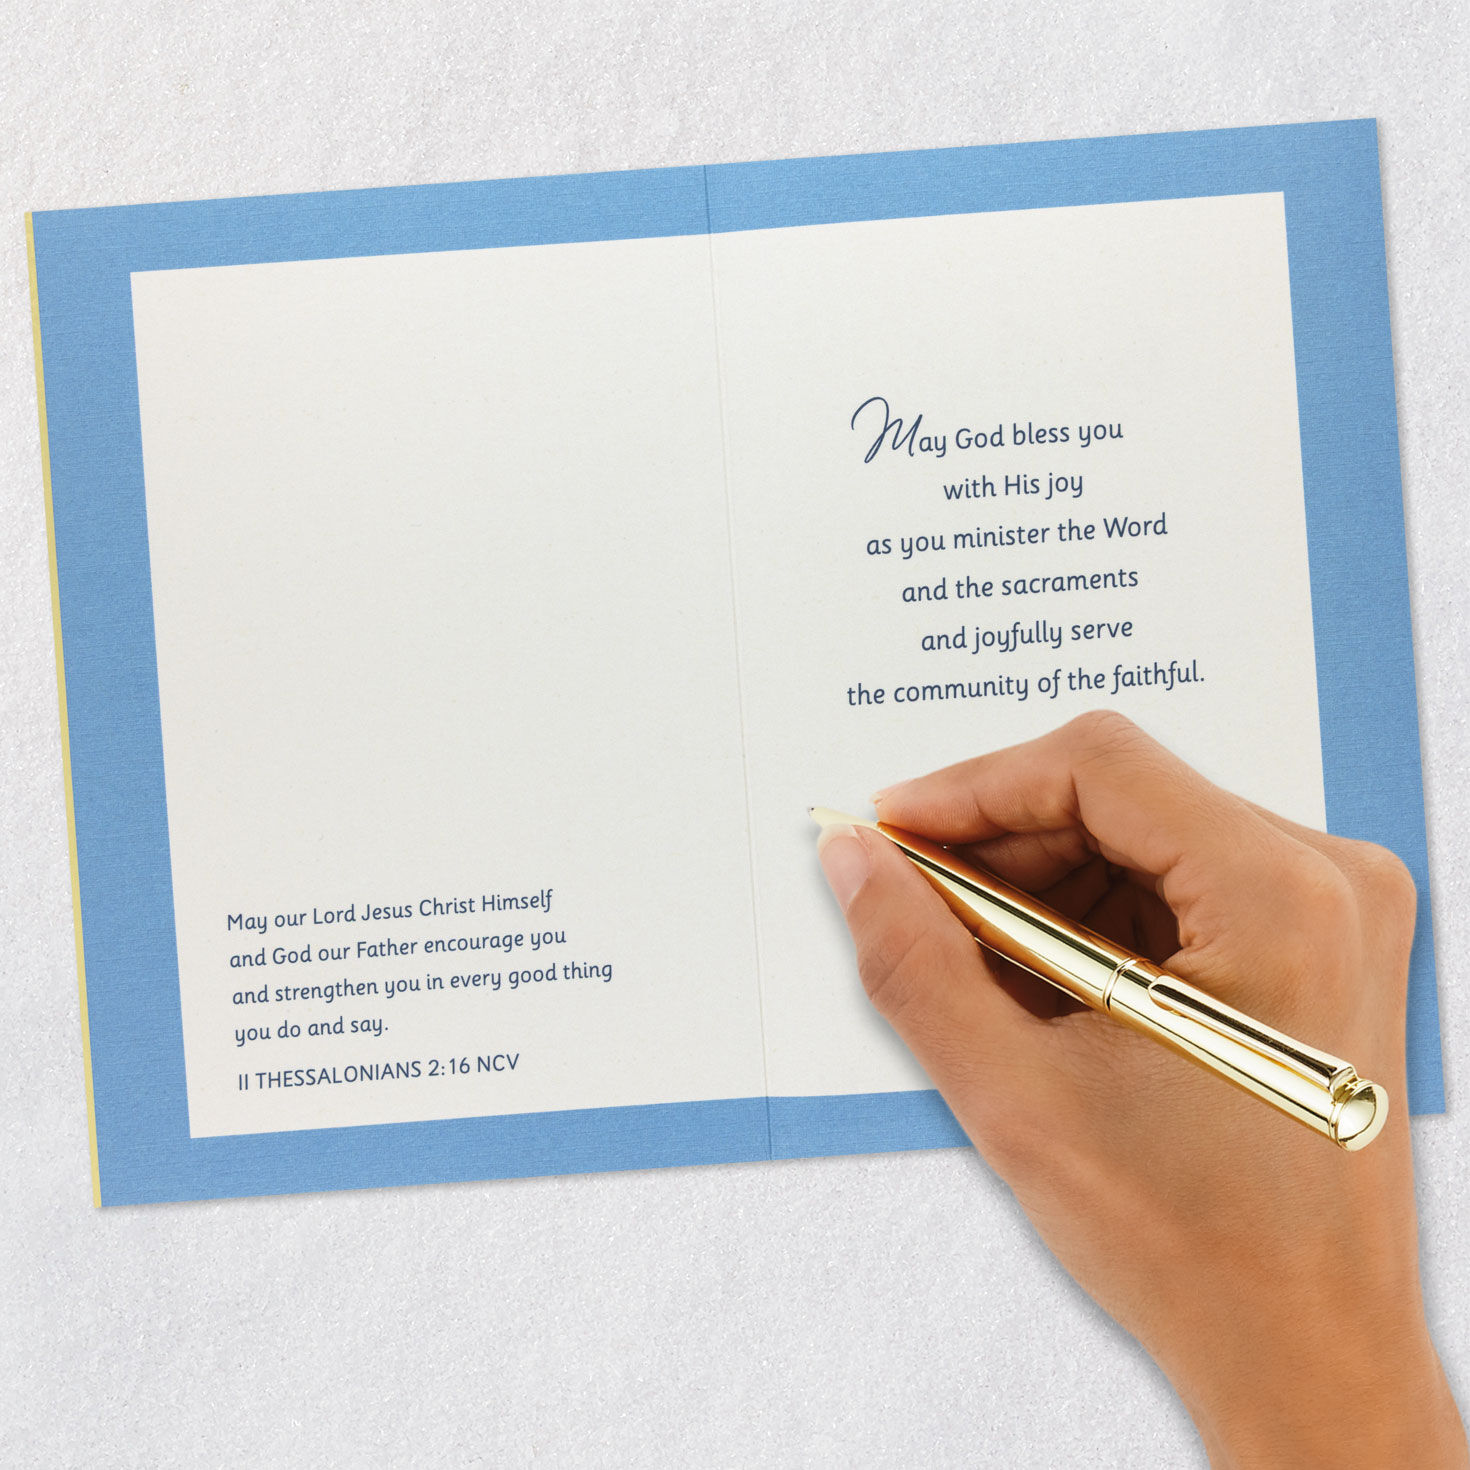 May our Lord Jesus Christ Himself
and God our Father encourage you
and strengthen you in every good thing
you do and say.
II THESSALONIANS 2:16 NCV
May God bless you
with His joy
as you minister the Word
and the sacraments
and joyfully serve
the community of the faithful.